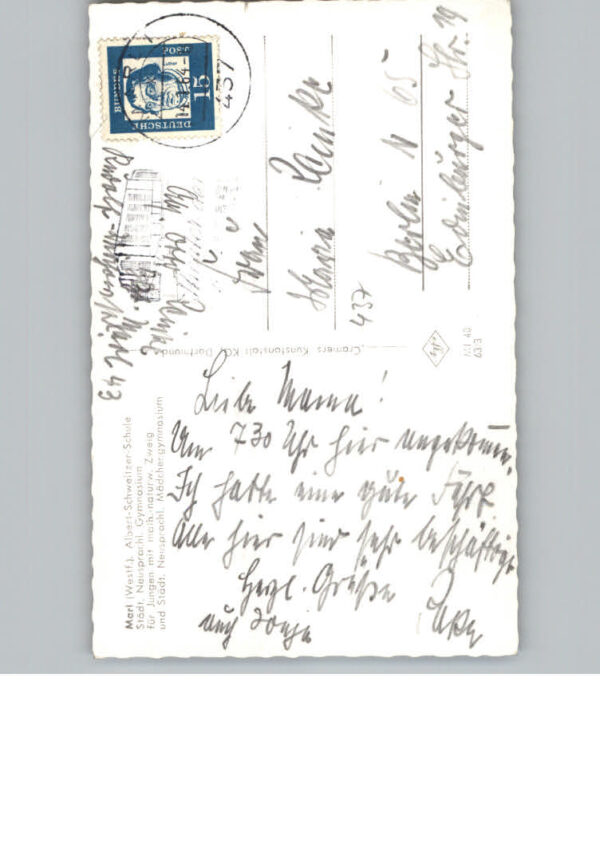 Marl (Westf.), Albert-Schweitzer-Schule
Städt. Neusprachl. Gymnasium
für Jungen mit math.-naturw. Zweig
und Städt. Neusprachl. Mädchengymnasium
Liebe Mama!
Um 730 Uhr hier angekommen.
Ich hatte eine gute Fahrt.
Alle hier sind sehr beschäftigt
Herzl. Grüße
auch
Cramers Kunstanstalt KG. Dortmund
437
DEUTSCHE
BUNDESPOST
15
437
Marl 43
Frau
Maria
Berlin N 65
Edinburger Str. 19